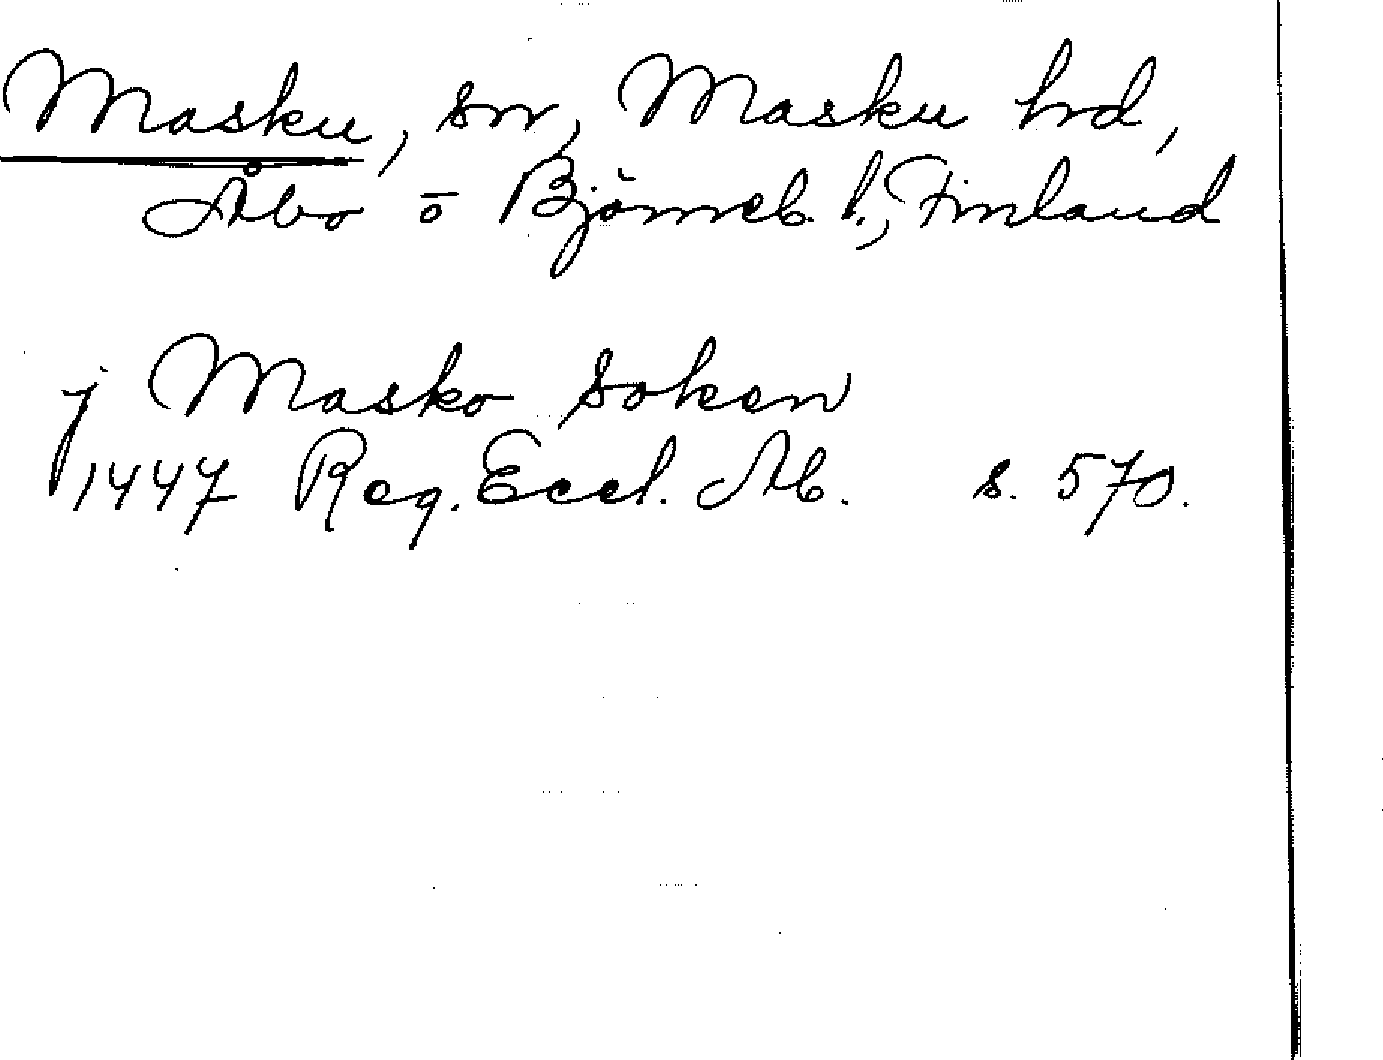 Masku, sn, Masku hrd,
Åbo o Björneb. l., Finland
j Masko soken
1447 Reg. Eccl. Ab. s. 570.